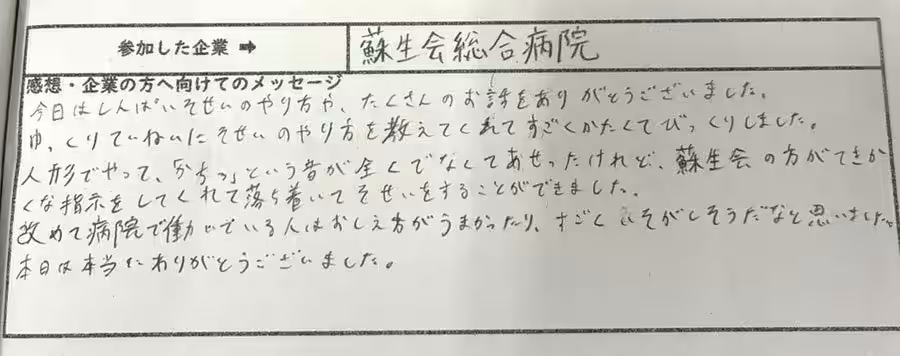 参加した企業 ➡
蘇生会総合病院
感想・企業の方へ向けてのメッセージ
今日はしんぱいそせいのやり方や、たくさんのお話をありがとうございました。
ゆっくりていねいにそせいのやり方を教えてくれてすごくかたくてびっくりしました。
人形でやって、「かちっ」という音が全くでなくてあせったけれど、蘇生会の方がてきか
くな指示をしてくれて落ち着いてそせいをすることができました。
改めて病院で働いている人はおしえ方がうまかったり、すごくいそがしそうだなと思いました。
本日は本当にありがとうございました。